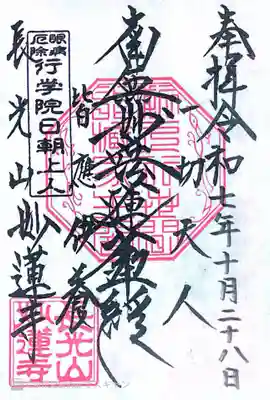 奉拝 令和七年十月二十八日
一切天人
南無妙法蓮華経
皆應供養
眼病厄除
行学院日朝上人
長光山妙蓮寺